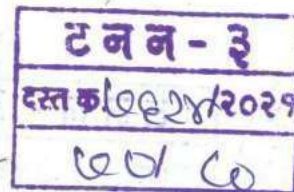 ट न न - ३
दस्त क्र७६२४/२०२१
७०/ ८०